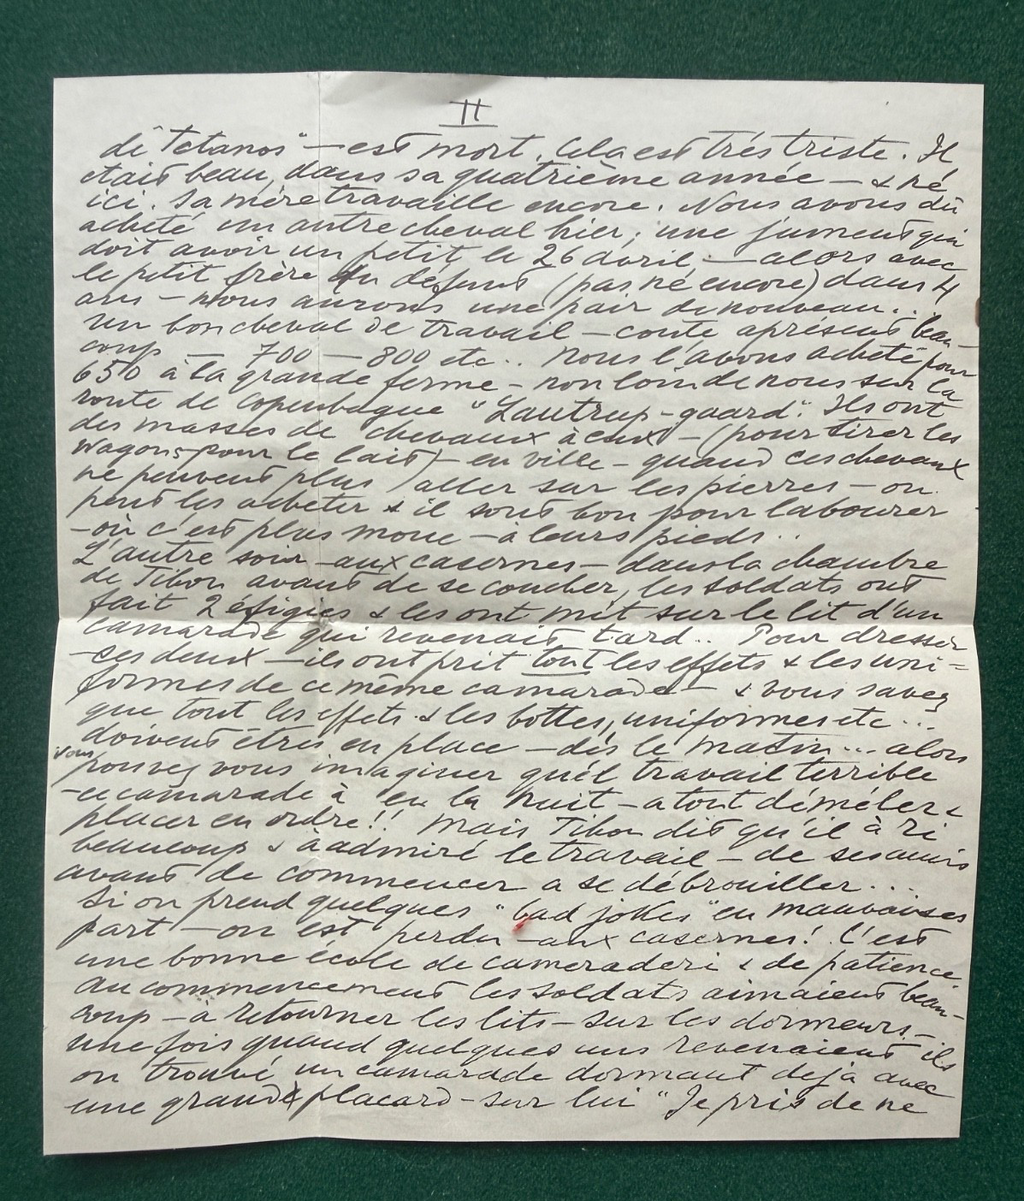 II
de "Tetanos" — est mort. Cela est trés triste. Il
etait beau, dans sa quatrième année — & né
ici. Sa mère travaille encore. Nous avons dû
acheté un autre cheval hier; une jument qui
doit avoir un petit le 26 avril — alors avec
le petit frère du défunt (pas né encore) dans 4
ans — nous aurons une pair de nouveau..
un bon cheval de travail — coute aprésent beau-
coup — 700 — 800 etc.. nous l'avons acheté pour
650 à la grande ferme — non loin de nous sur la
route de Copenhague "Lautrup-gaard". Ils ont
des masses de chevaux à eux — (pour tirer les
wagons pour le lait) — en ville — quand ces chevaux
ne peuvent plus aller sur les pierres — on
peut les acheter & il sont bon pour labourer
— où c'est plus moue — à leurs pieds..
L'autre soir — aux casernes — dans la chambre
de Tibon avant de se coucher, les soldats ont
fait 2 éfigies & les ont mit sur le lit d'un
camarade qui revenait tard.. Pour dresser
— ces deux — ils ont prit tout les effets & les uni=
formes de ce même camarade — & vous savez
que tout les effets & les bottes, uniformes etc..
doivent êtres en place — dès le matin... alors
vous pouvez vous imaginer quél travail terrible
— ce camarade à eu la nuit — a tout démêler &
placer en ordre!! Mais Tibon dit qu'il à ri
beaucoup & à admiré le travail — de ses amis
avant de commencer a se débrouiller...
Si on prend quelques "bad jokes" en mauvaises
part — on est perdu — aux casernes! C'est
une bonne école de cameraderi & de patience
Au commencement les soldats aimaient beau-
coup — à retourner les lits — sur les dormeurs —
une fois quand quelques uns revenaient — ils
on trouvé un camarade dormant deja avec
une grande placard — sur lui "Je pris de ne